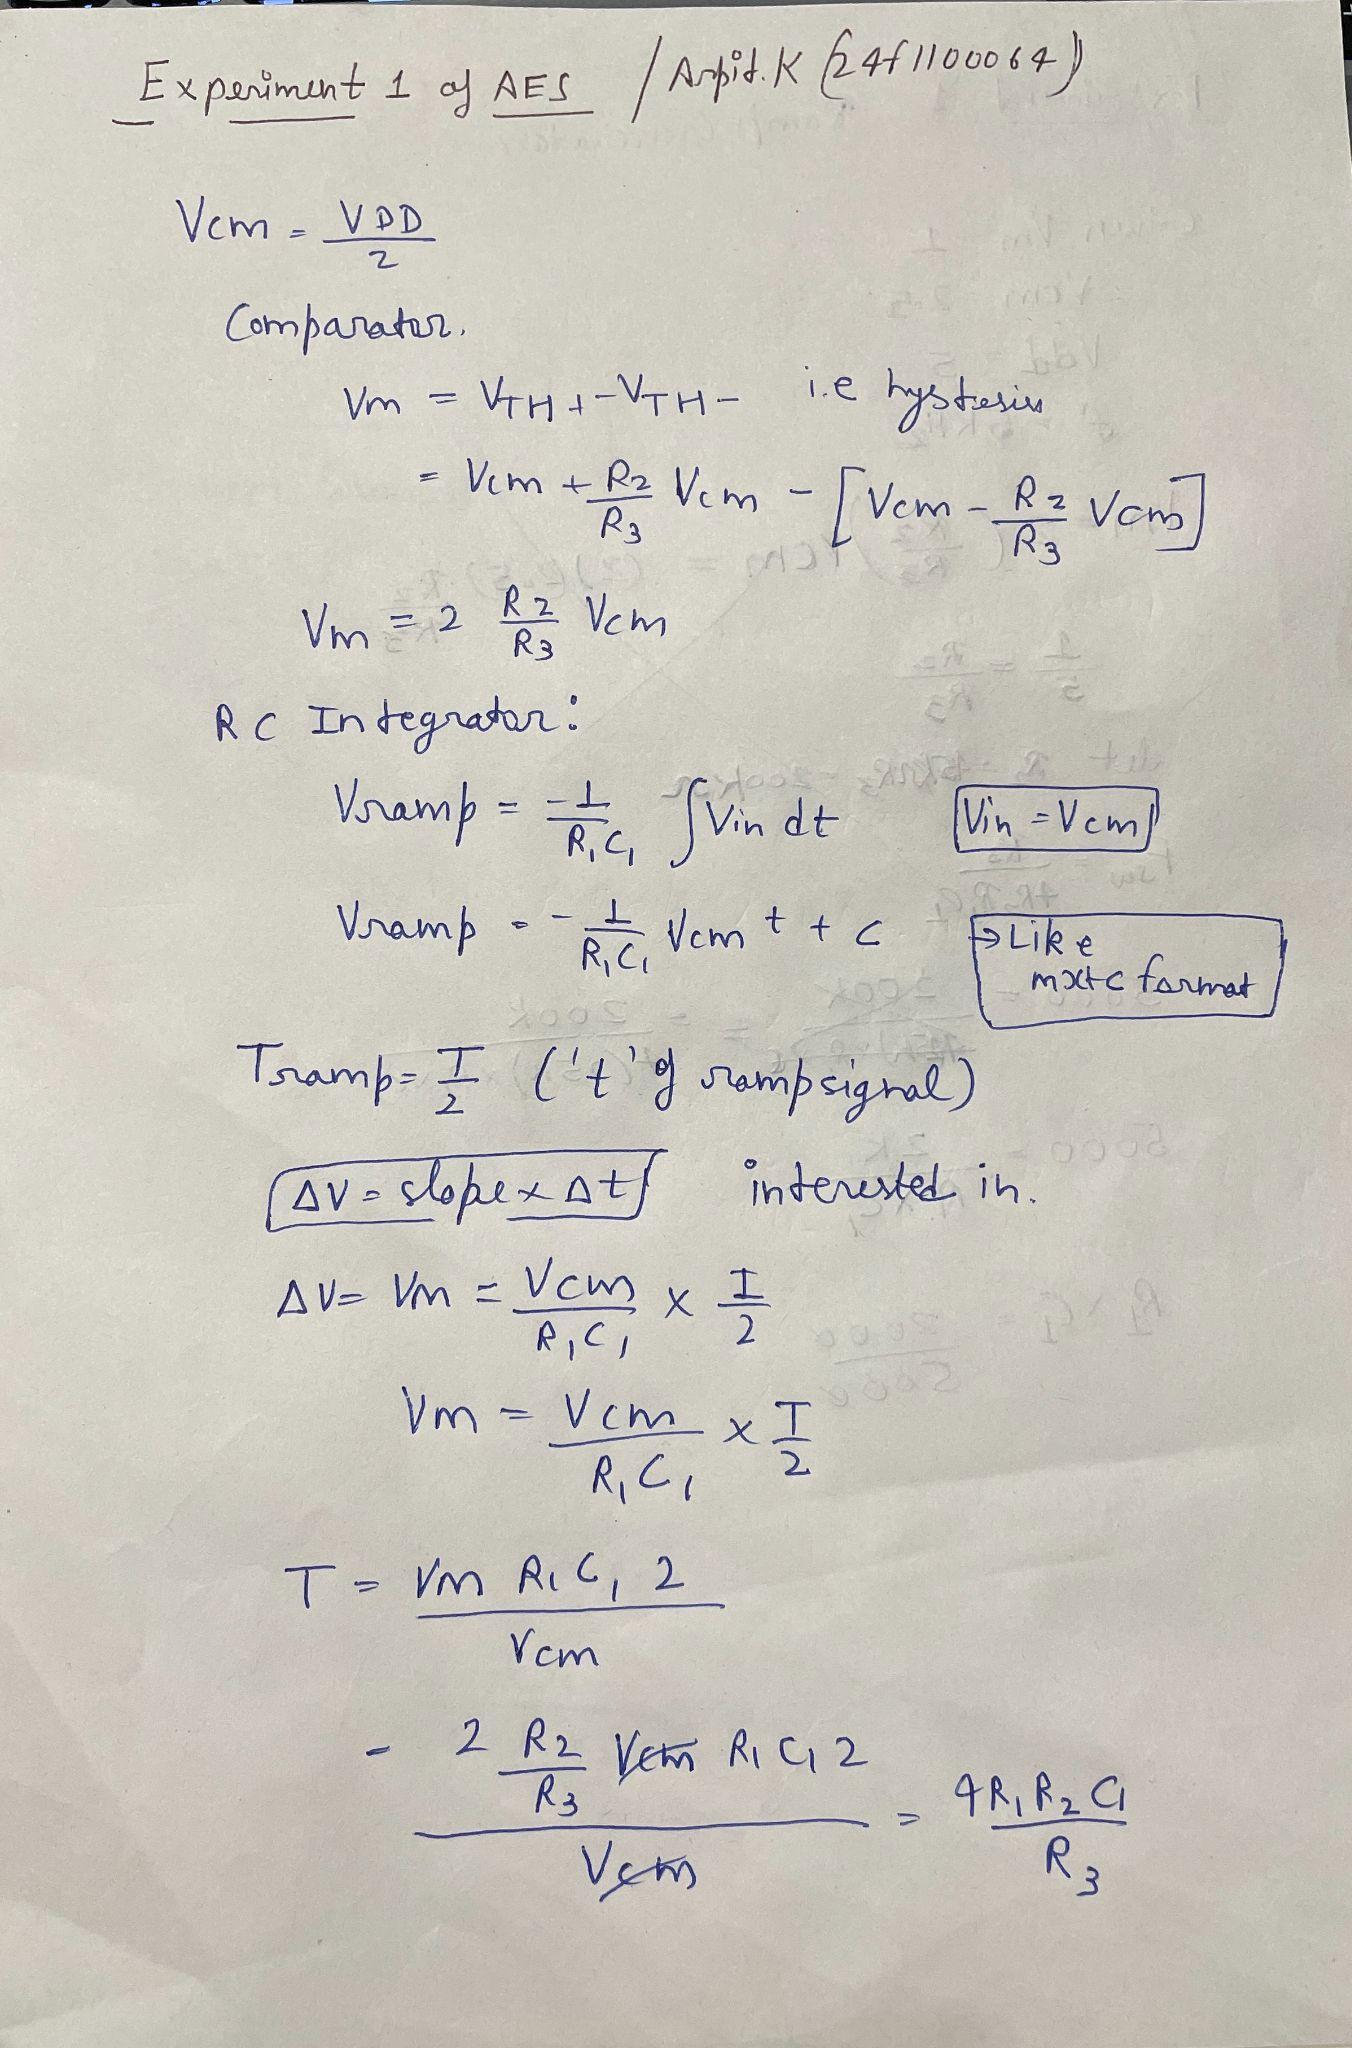 Experiment 1 of AES / Arpit.K (24f1100064)
Vcm = VDD/2
Comparator.
Vm = VTH+ - VTH- i.e hysteresis
= Vcm + R2/R3 Vcm - [Vcm - R2/R3 Vcm]
Vm = 2 R2/R3 Vcm
RC Integrator:
Vramp = -1/R1C1 ∫Vin dt Vin = Vcm
Vramp = -1/R1C1 Vcm t + c → Like
mx+c format
Tramp = T/2 ('t' of rampsignal)
ΔV = slope x Δt interested in.
ΔV = Vm = Vcm/R1C1 x T/2
Vm = Vcm/R1C1 x T/2
T = Vm R1C1 2/Vcm
= 2 R2/R3 Vcm R1C1 2/Vcm = 4R1R2C1/R3